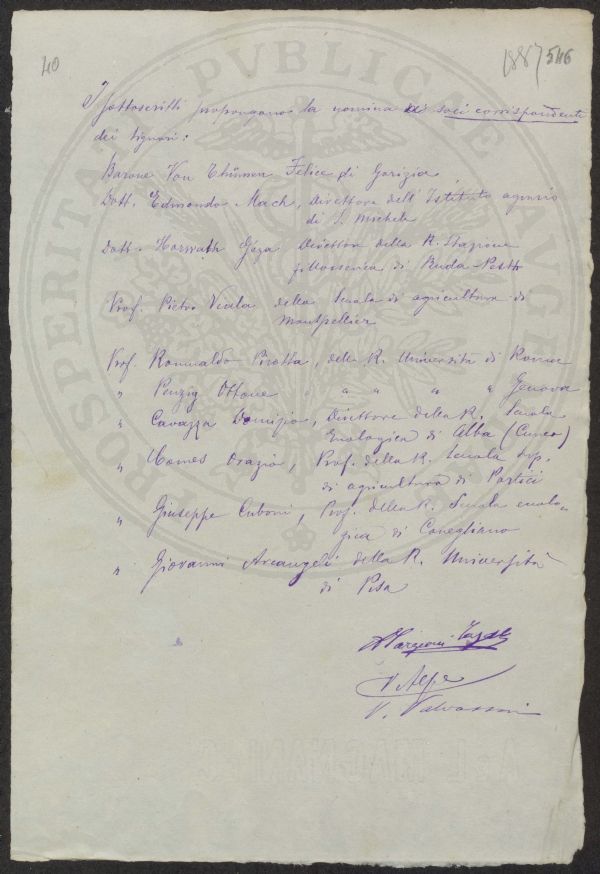 40
1887 546
I sottoscritti propongono la nomina di soci corrispondenti
dei signori:
Barone Von Thümen Felice di Gorizia
Dott. Edmondo Mach, Direttore dell'Istituto agrario
di S. Michele
Dott. Horwath Géza Direttore della R. Stazione
fillosserica di Buda-Pesth
Prof. Pietro Viala della Scuola di agricoltura di
Montpellier
Prof. Romualdo Pirotta, della R. Università di Roma
" Penzig Ottone " " " " Genova
" Cavazza Domizio, Direttore della R. Scuola
Enologica di Alba (Cuneo)
" Comes Orazio, Prof. della R. Scuola sup.
di agricoltura di Portici
" Giuseppe Cuboni, Prof. della R. Scuola enolo-
gica di Conegliano
" Giovanni Arcangeli della R. Università
di Pisa
A Targioni-Tozzetti
V. Alpe
V. Valvassori
PVBLICAE
PROSPERITATI
AVGE